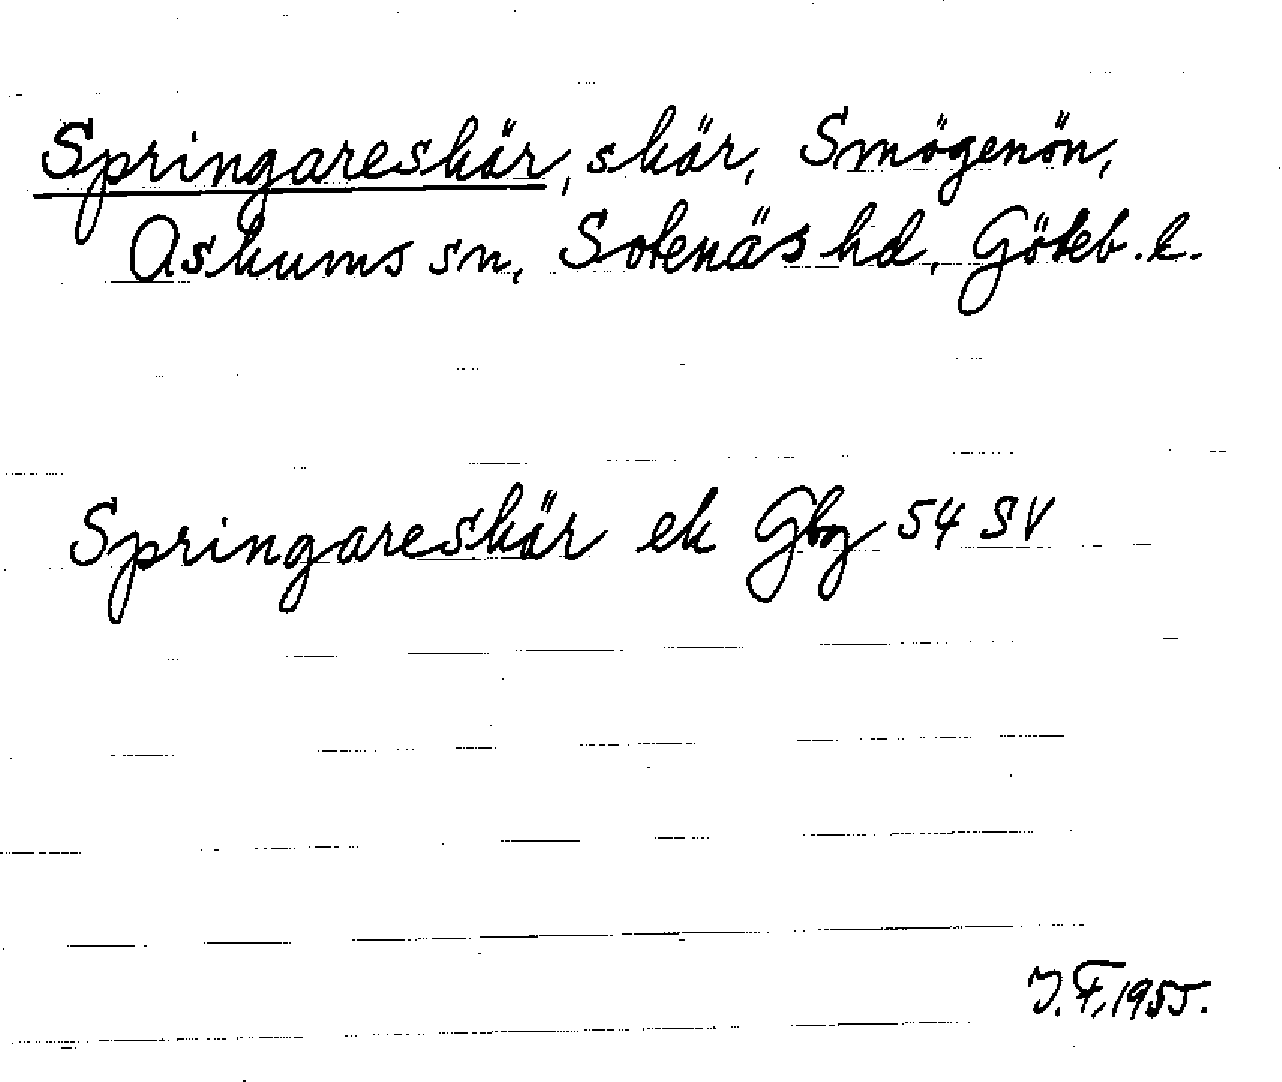 Springareskär, skär, Smögenön,
Askums sn, Sotenäs hd, Göteb. l.
Springareskär ek Gbg 54 SV
J. F. 1955.